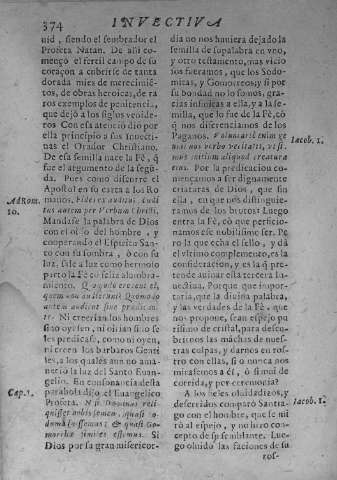 374
INVECTIVA
uid, siendo el sembrador el
Profeta Natan. De alli co-
mençò el fertil campo de su
coraçon a cubrirse de tanta
dorada mies de merecimiē-
tos, de obras heroicas, de ra
ros exemplos de penitencia,
que dejò a los siglos venide-
ros Con esa atenciō dio por
ella principio a sus invecti-
nas el Orador Christiano.
De esa semilla nace la Fè, q̄
fue el argumento de la segū-
da. Pues como discurre el
Apostol en su carta a los Ro
manos. Fides ex auditu. Audi
tus autem per Verbum Christi.
Mandase la palabra de Dios
con el oido del hombre, y
cooperando el Espiritu San-
to con su sombra, ò con su
luz, sale a luz como hermoso
parto la Fè cō feliz alumbra-
miento. Quomodo credent ei,
quem non audierunt? Quomodo
autem audient sine prædican
te. Ni creerian los hombres
sino oyesen, ni oirian sino se
les predicase, como ni oyen,
ni creen los barbaros Genti
les, a los quales aun no ama-
neciò la luz del Santo Euan-
gelio. En consonancia desta
parabola dijo el Euangelico
Profeta. Nisi Dominus reli-
quisset nobis semen, quasi So-
doma fuissemus; & quasi Go-
morrha similes essemus. Si
Dios por sa gran misericor-
Ad Rom.
10.
Cap. 1.
dia no nos huviera dejado la
semilla de su palabra en vno,
y otro testamento, mas vicio
sos fueramos, que los Sodo-
mitas, y Gomorreos; y si por
su bondad no lo somos, gra-
cias infinitas a ella, y a la se-
milla, que lo fue de la Fè, cō
q̄ nos diferenciamos de los
Paganos. Voluntariè enim ge
nuit nos verbo veritatis, vt si-
mus initium aliquod creaturæ
eius. Por la predicacion co-
mençamos a ser dignamente
criaturas de Dios, que sin
ella, en que nos distinguie-
ramos de los brutos? Luego
entra la Fè, cō que perficio-
namos ese nobilisimo ser. Pe
ro la que echa el sello, y dà
el vltimo complemento, es la
consideracion, y es la q̄ pre-
tende auiuar ella tercera In-
uectiua. Porque que impor-
taria, que la diuina palabra,
y las verdades de la Fè, que
nos propone, sean espejo pu
risimo de cristal, para descu-
brirnos las máchas de nues-
tras culpas, y darnos en ros-
tro con ellas, si ò nunca nos
mirasemos a èl, ò si mui de
corrida, y por ceremonia?
A los tales oluidadizos, y
deserridos comparò Santia-
go con el hombre, que se mi
rò al espejo, y no hizo con-
cepto de su semblante. Lue-
go oluidò las faciones de su
ros-
Iacob. 1.
Iacob. 1.